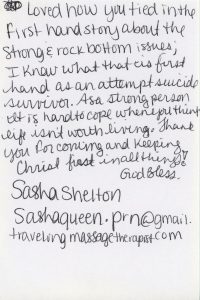 Loved how you tied in the
first hand story about the
strong & rock bottom issues;
I know what that is first
hand as an attempt suicide
survivor. As a strong person
it is hard to cope when you think
life isn't worth living. Thank
you for coming and keeping
Christ first in all things!
God Bless.
Sasha Shelton
Sashaqueen.prn@gmail.
travelingmassagetherapist.com